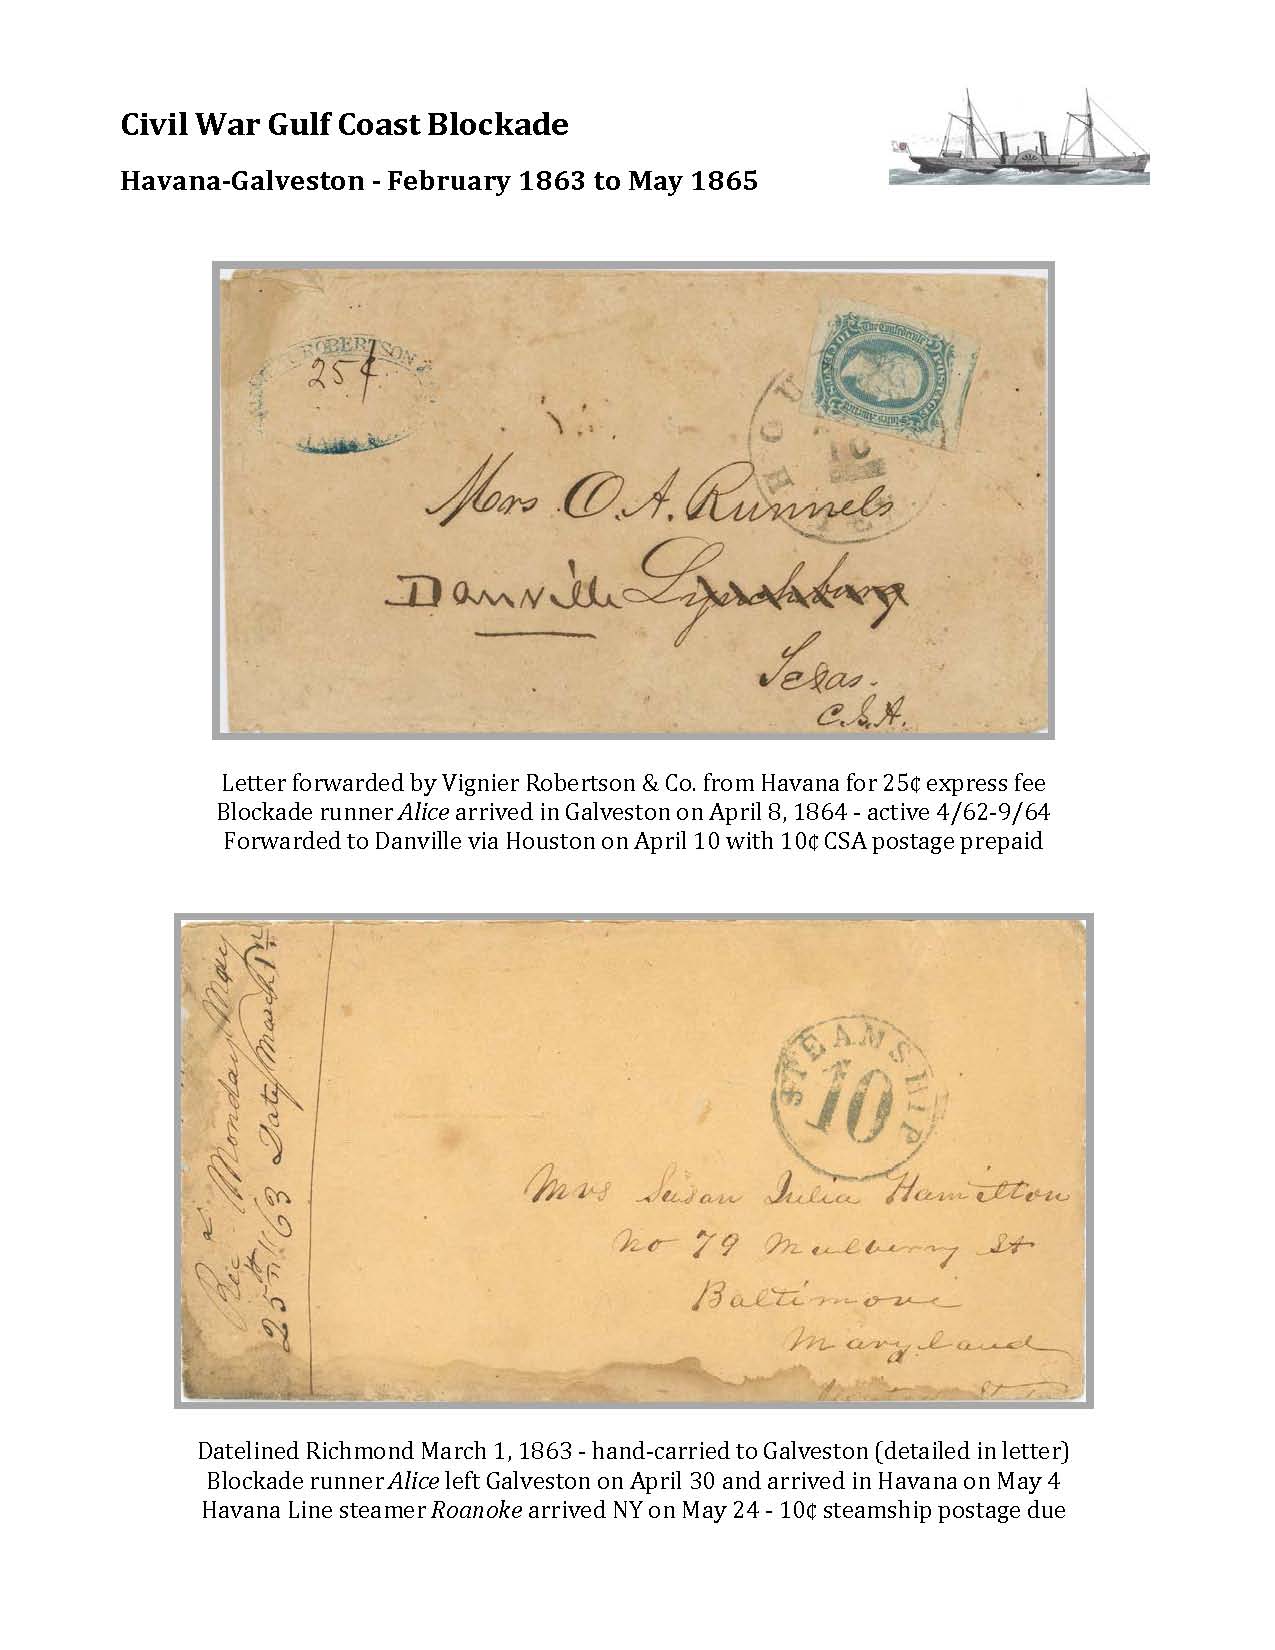 Civil War Gulf Coast Blockade
Havana-Galveston - February 1863 to May 1865
ROBERTSON
25¢
The Confederate States of America
POSTAGE
10 CENTS
HOU TEX
10
Mrs O. A. Runnels
Danville Lynchburg
Texas.
C.S.A.
Letter forwarded by Vignier Robertson & Co. from Havana for 25¢ express fee
Blockade runner Alice arrived in Galveston on April 8, 1864 - active 4/62-9/64
Forwarded to Danville via Houston on April 10 with 10¢ CSA postage prepaid
Rec'd Monday May
25th 1863 Date March 1st
STEAMSHIP
10
Mrs Susan Julia Hamilton
No 79 Mulberry St
Baltimore
Maryland
Datelined Richmond March 1, 1863 - hand-carried to Galveston (detailed in letter)
Blockade runner Alice left Galveston on April 30 and arrived in Havana on May 4
Havana Line steamer Roanoke arrived NY on May 24 - 10¢ steamship postage due